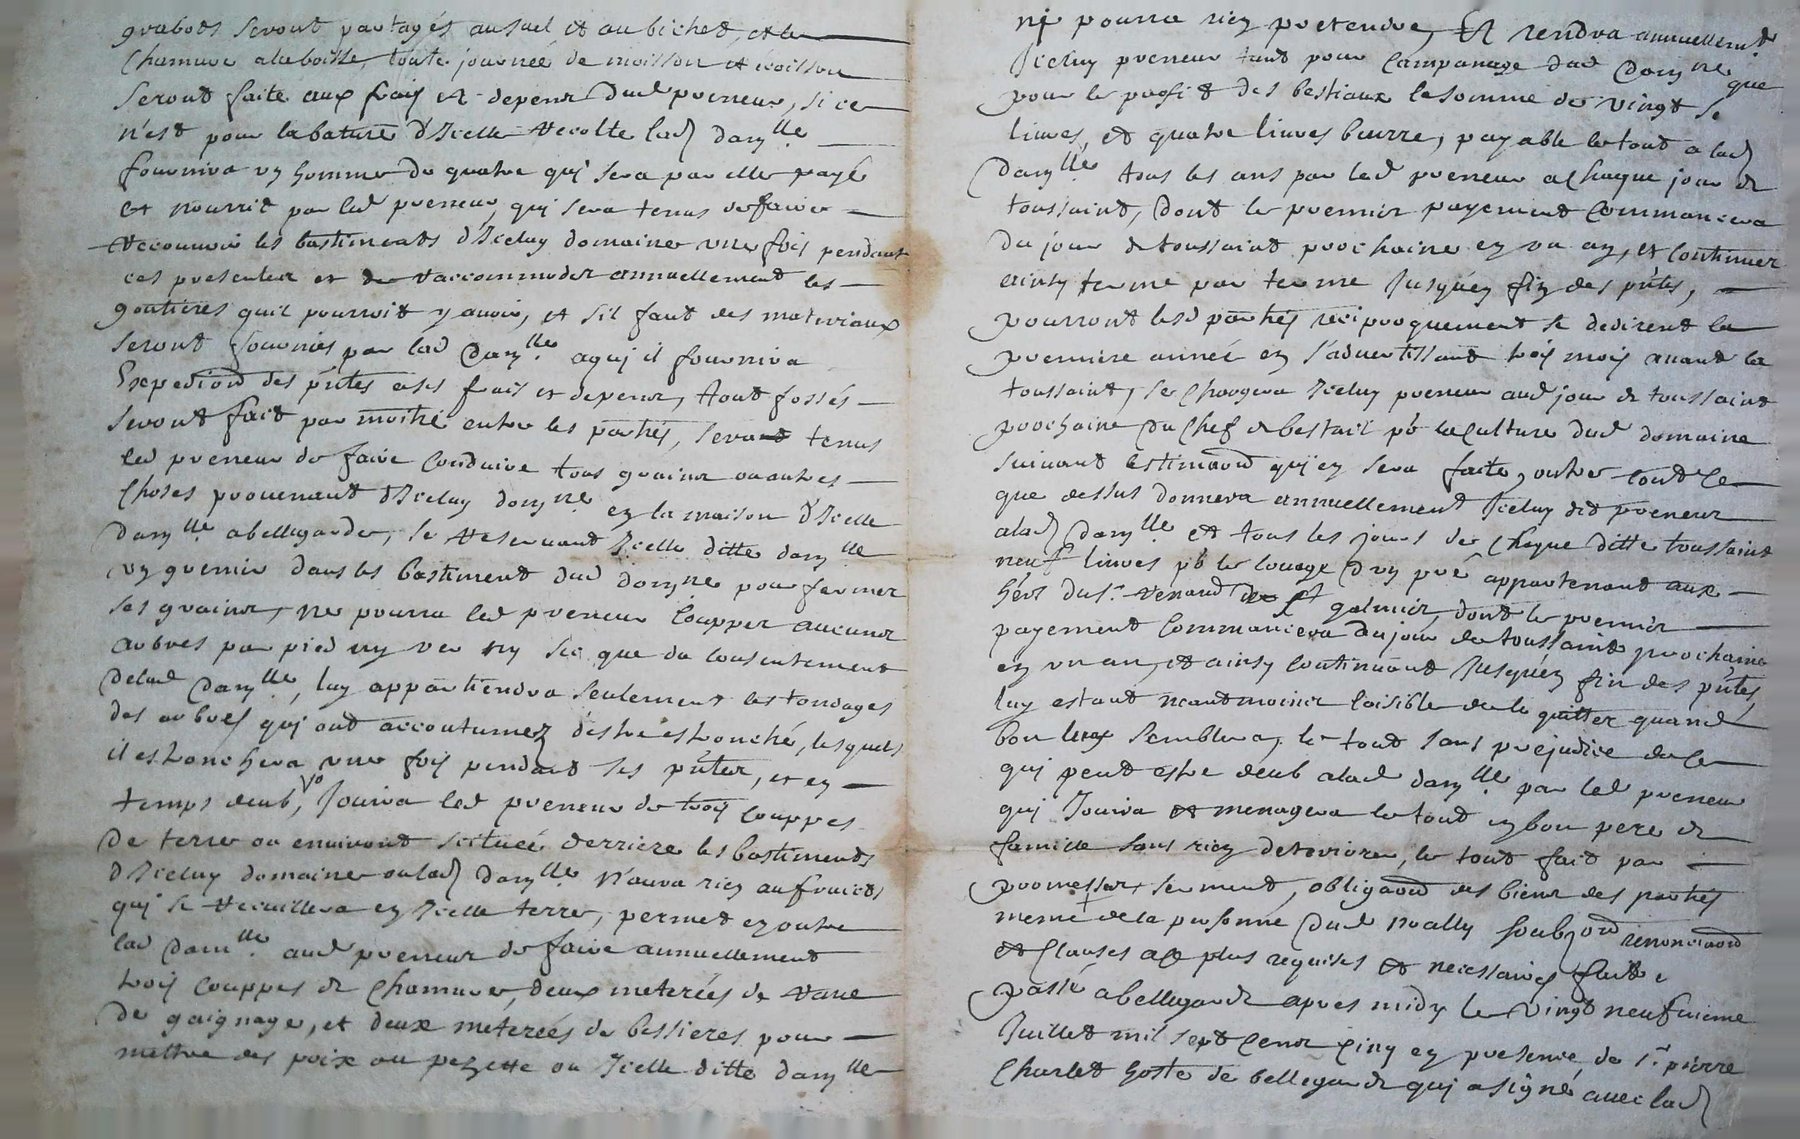 grabots seront partagés au sael et au bichet, et le
Chanvre a la boitte, toute journée de moisson et noisson
Seront faite aux frais et depens dud preneur, si ce
n'est pour la bature d'Icelle Recolte lad damlle
fournira un homme de quatre qui sera par elle payé
et nourrit par led preneur, qui sera tenus de faire
Recouvrir les bastiments d'Iceluy domaine une fois pendant
ces presentes et de raccommoder annuellement les
goutieres quil pourroit y avoir, et sil faut des materiaux
Seront fournies par lad damlle aquj il fournira
Expediond des pntes a ses frais et depens, tout fossés
Seront fait par moitié entre les partiés, sera tenus
led preneur de faire Conduire tous grains ou autres
Choses provenant d'Iceluy domne en la maison d'Icelle
damlle abellegarde, se Reservant Icelle ditte damlle
un grenier dans les bastiment dud domne pour fermer
ses grains, ne pourra led preneur Coupper aucuns
arbres par pied ny ver ny sec que du Consentement
delad damlle, luy appartiendra seulement les tondages
des arbres quj ont accoutumez destre estronché, lesquels
il estronchera une fois pendant ses pntes, et en
temps deub, Jouira led preneur de trois Couppes
De terre ou environt scituée derriere les bastiments
d'Iceluy domaine ou lad damlle n'aura rien au fruicts
quj se Recuillera en Icelle terre, permet en outre
lad damlle aud preneur de faire annuellement
trois Couppes de Chanvre, deux meterées de Rave
De gaignage, et deux meterées de bessieres pour
mettre des poix ou pezette ou Icelle ditte damlle
ne pourra rien pretendre, Et rendra annuellement
Iceluy preneur tant pour Campanage dud domne que
pour le profit des bestiaux la somme de vingt se
livres, et quatre livres beurre, payable le tout a lad
damlle tous les ans par led preneur a Chaque jour de
toussaint, dont le premier payement Commancera
du jour de toussaint prochaine en un an, et Continuer
ainsy terme par terme Jusquén fin des pntes,
pourront lesd partiés reciproquement se dedirent la
premiere année en s'advertissant trois mois avant la
toussaint, se Chargera Iceluy preneur aud jour de toussaint
prochaine du Chef de bestail pr la Culture dud domaine
Suivant lestimaond quj en sera faite, outre tout Ce
que dessus donnera annuellement Iceluy dit preneur
alad damlle et tous les jours de Chaque ditte toussaint
neuf livres pr le louage d'un pré appartenant aux
hérs du sr Renaud de st galmier, dont le premier
payement Commancera du jour de toussaint prochaine
en un an, et ainsy Continuant Jusquén fin des pntes,
luy estant neantmoins loisible de le quitter quand
bon leur Semblera, le tout sans prejudice de Ce
quj peut estre deub alad damlle par led preneur
quj Jouira et menagera le tout en bon pere de
famille sans rien deteriorer, le tout fait par
promesses, serment, obligaond des biens des partiés
meme de la personne dud noally soubzond renonciaond
et Clauses aux plus requises et necessaires fait e
passé abellegarde apres midy le vingt neufvieme
Juillet mil sept Cens Cinq en presence de sr pierre
Charlet hoste de bellegarde quj a signé avec lad